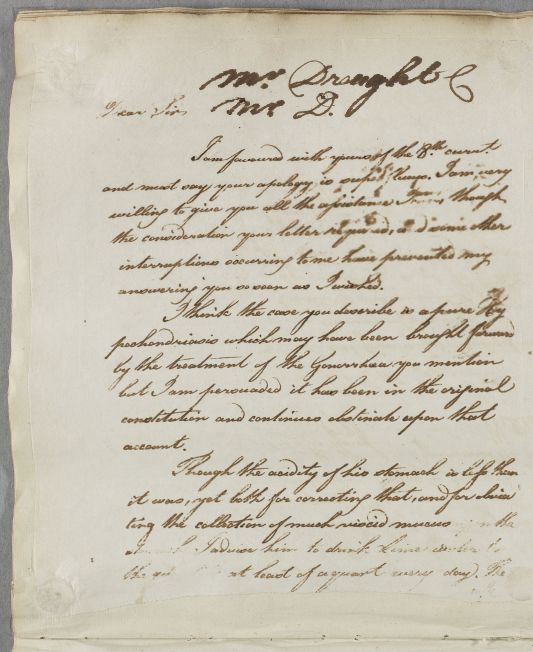 Mr. Draught
Mr. D.
Dear Sir
I am favoured with yours of the 8th. currt.
and must say your apology is I am very
willing to give you all the assistance I can, though
the consideration your letter required, and some other
interruptions occurring to me have prevented my
answering you so soon as I wished.
I think the case you describe is a pure Hy
pochondriasis which may have been brought forward
by the treatment of the Gonorrhea you mention
but I am persuaded it has been in the original
constitution and continues obstinate upon that
account.
Though the acidity of his stomach is less than
it was, yet both for correcting that, and for obvia
ting the collection of much viscid mucus in the
I advise him to drink Lime water to
the at least of a quart every day. The